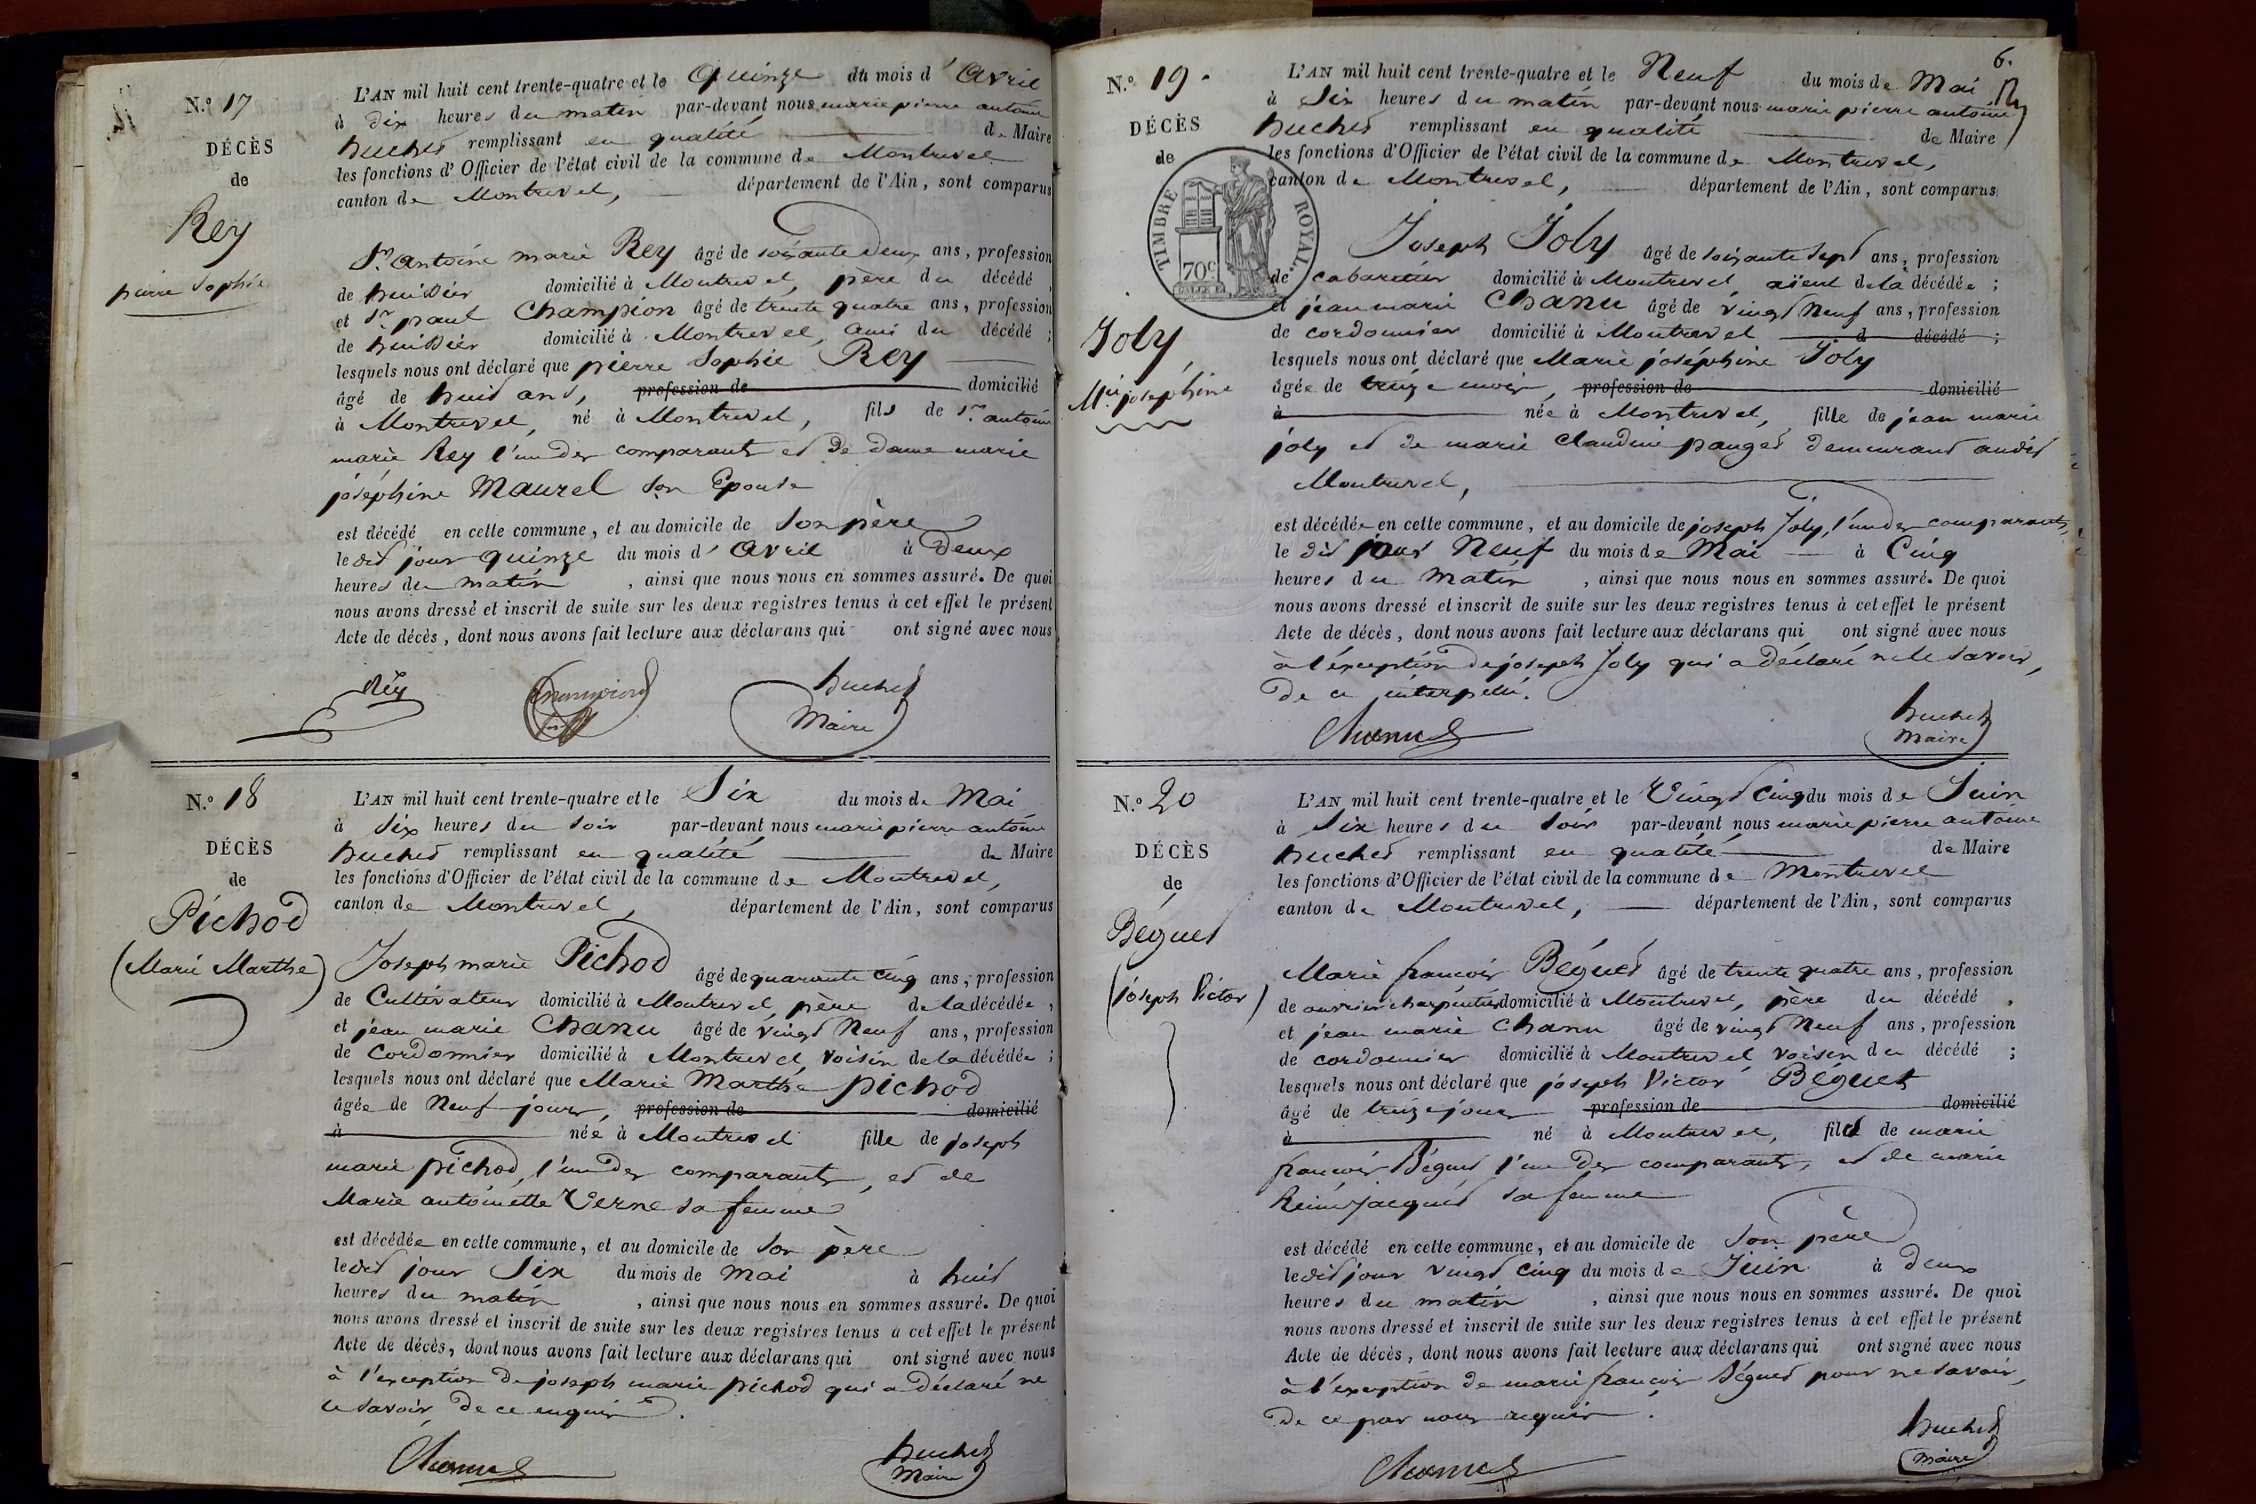 N.º 17
DÉCÈS
de
Rey
pierre Sophie
L'AN mil huit cent trente-quatre et le Quinze du mois d' Avril
à dix heures du matin par-devant nous marie pierre antoine
huchet remplissant en qualité de Maire
les fonctions d'Officier de l'état civil de la commune de Montrevel
canton de Montrevel, département de l'Ain, sont comparus
Sr. antoine marie Rey âgé de soixante deux ans, profession
de huissier domicilié à Montrevel, père du décédé,
et Sr. paul Champion âgé de trente quatre ans, profession
de huissier domicilié à Montrevel, ami du décédé ;
lesquels nous ont déclaré que pierre Sophie Rey
âgé de huit ans, profession de domicilié
à Montrevel, né à Montrevel, fils de Sr. antoine
marie Rey l'un des comparants et de dame marie
joséphine Maurel son Epouse
est décédé en cette commune, et au domicile de son père
le dit jour quinze du mois d' Avril à Deux
heures du matin, ainsi que nous nous en sommes assuré. De quoi
nous avons dressé et inscrit de suite sur les deux registres tenus à cet effet le présent
Acte de décès, dont nous avons fait lecture aux déclarans qui ont signé avec nous
Rey Champion huchet
Maire
N.º 18
DÉCÈS
de
Pichod
(Marie Marthe)
L'AN mil huit cent trente-quatre et le Six du mois de Mai
à Six heures du soir par-devant nous marie pierre antoine
huchet remplissant en qualité de Maire
les fonctions d'Officier de l'état civil de la commune de Montrevel,
canton de Montrevel, département de l'Ain, sont comparus
Joseph marie Pichod âgé de quarante cinq ans, profession
de Cultivateur domicilié à Montrevel, père de la décédée,
et jean marie Chanu âgé de vingt Neuf ans, profession
de Cordonnier domicilié à Montrevel, voisin de la décédée ;
lesquels nous ont déclaré que Marie Marthe pichod
âgée de Neuf jours, profession de domicilié
à née à Montrevel fille de joseph
marie pichod, l'un des comparants, et de
Marie antoinette Verne sa femme
est décédée en cette commune, et au domicile de son père
le dit jour Six du mois de Mai à huit
heures du matin, ainsi que nous nous en sommes assuré. De quoi
nous avons dressé et inscrit de suite sur les deux registres tenus à cet effet le présent
Acte de décès, dont nous avons fait lecture aux déclarans qui ont signé avec nous
à l'exception de joseph marie pichod qui a déclaré ne
le savoir de ce enquis.
Chanu huchet
Maire
6.
N.º 19.
DÉCÈS
de
TIMBRE ROYAL.
70c
Joly,
Mie joséphine
L'AN mil huit cent trente-quatre et le Neuf du mois de Mai
à Six heures du matin par-devant nous marie pierre antoine
huchet remplissant en qualité de Maire
les fonctions d'Officier de l'état civil de la commune de Montrevel,
canton de Montrevel, département de l'Ain, sont comparus
Joseph Joly âgé de soixante sept ans, profession
de cabaretier domicilié à Montrevel, aïeul de la décédée ;
et jean marie Chanu âgé de vingt Neuf ans, profession
de cordonnier domicilié à Montrevel d décédé ;
lesquels nous ont déclaré que Marie joséphine Joly
âgée de treize mois, profession de domicilié
à née à Montrevel, fille de jean marie
joly et de marie Claudine pauget demeurant audit
Montrevel,
est décédée en cette commune, et au domicile de joseph Joly, l'un des comparants,
le dit jour Neuf du mois de Mai à Cinq
heures du Matin, ainsi que nous nous en sommes assuré. De quoi
nous avons dressé et inscrit de suite sur les deux registres tenus à cet effet le présent
Acte de décès, dont nous avons fait lecture aux déclarans qui ont signé avec nous
à l'exception de joseph Joly qui a déclaré ne le savoir,
de ce interpellé.
Chanu huchet
Maire
N.º 20
DÉCÈS
de
Béguet
(joseph Victor)
L'AN mil huit cent trente-quatre et le Vingt Cinq du mois de Juin
à Six heures du soir par-devant nous marie pierre antoine
huchet remplissant en qualité de Maire
les fonctions d'Officier de l'état civil de la commune de Montrevel
canton de Montrevel, département de l'Ain, sont comparus
Marie françois Béguet âgé de trente quatre ans, profession
de ouvrier charpentier domicilié à Montrevel, père du décédé,
et jean marie Chanu âgé de vingt Neuf ans, profession
de cordonnier domicilié à Montrevel voisin du décédé ;
lesquels nous ont déclaré que joseph Victor Béguet
âgé de treize jours profession de domicilié
à né à Montrevel, fils de marie
françois Béguet l'un des comparants, et de marie
Reine Jacquet sa femme
est décédé en cette commune, et au domicile de son père
le dit jour vingt cinq du mois de Juin à deux
heures du matin, ainsi que nous nous en sommes assuré. De quoi
nous avons dressé et inscrit de suite sur les deux registres tenus à cet effet le présent
Acte de décès, dont nous avons fait lecture aux déclarans qui ont signé avec nous
à l'exception de marie françois Béguet pour ne savoir,
de ce par nous requis.
Chanu huchet
Maire